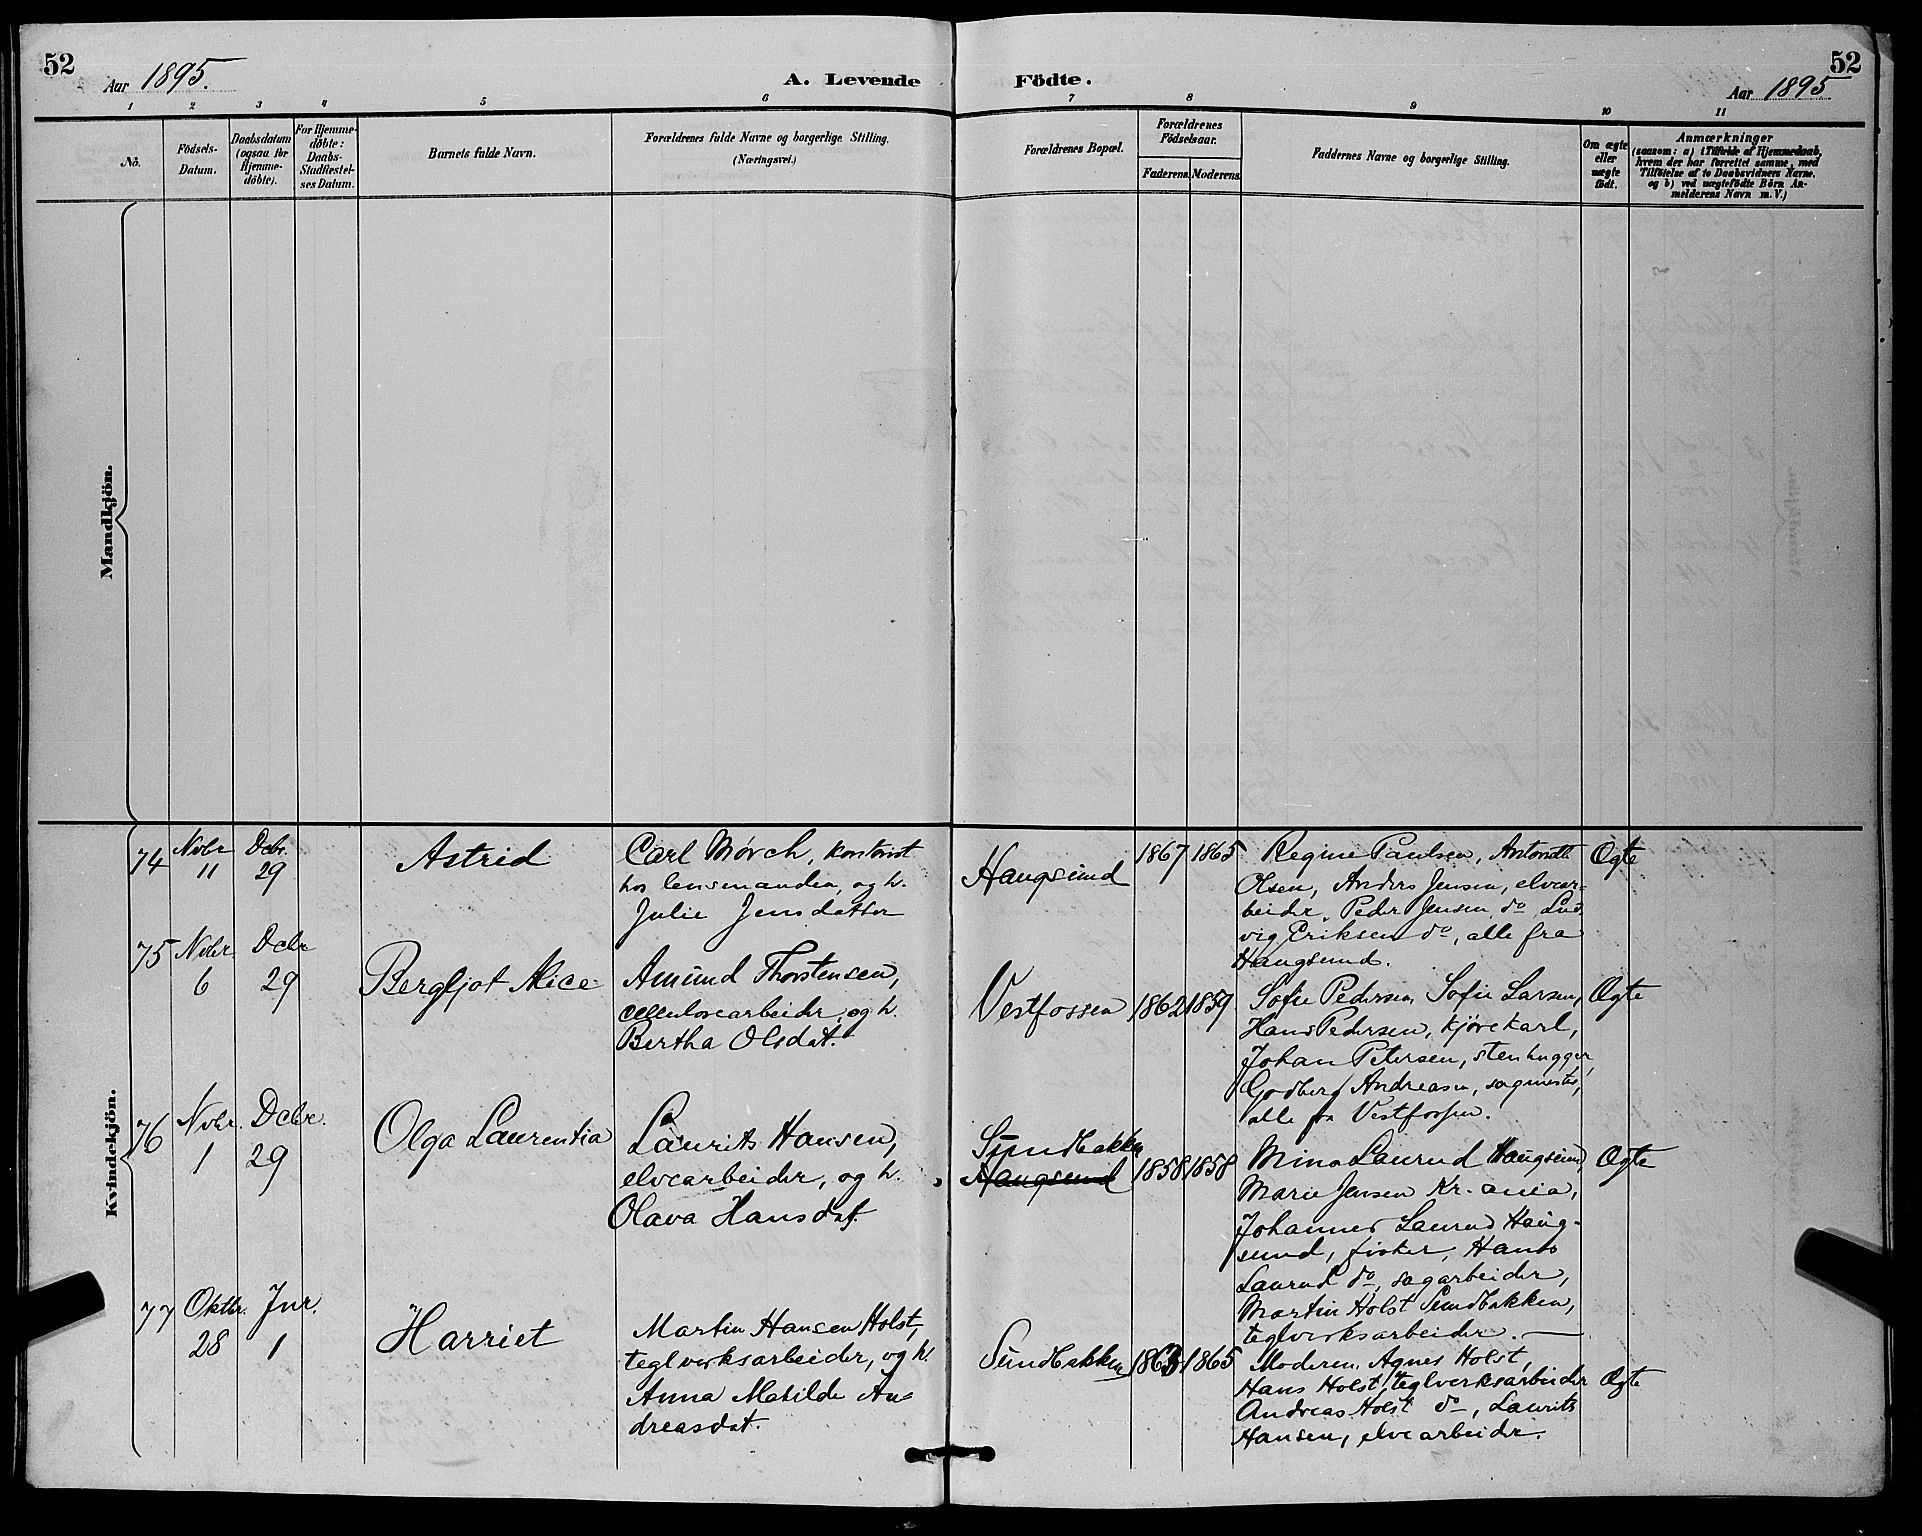 52
Aar 1895.
A. Levende Födte.
Aar 1895
52
1 2 3 4 5 6 7 8 9 10 11
Nö.
Födsels-
Datum.
Daabsdatum
(ogsaa for
Hjemme-
döbte).
For Hjemme-
döbte:
Daabs-
Stadfæstel-
ses Datum.
Barnets fulde Navn.
Forældrenes fulde Navne og borgerlige Stilling.
(Næringsvei.)
Forældrenes Bopæl.
Forældrenes
Födselsaar.
Faderens.
Moderens.
Faddernes Navne og borgerlige Stilling.
Om ægte
eller
uægte
födt.
Anmærkninger
(saasom: a) i Tilfælde af Hjemmedaab,
hvem der har forrettet samme, med
Tilföielse af to Daabsvidners Navne,
og b) ved uægtefödte Börn An-
melderens Navn m. V.)
Mandkjön.
Kvindekjön.
74
Nvbr
11
Dcbr.
29
Astrid
Carl Mörch, kontorist
hos lensmanden, og h.
Julie Jensdatter
Haugsund
1867
1865
Regine Paulsen, Antonette
Olsen, Anders Jensen, elvear-
beider, Peder Jensen do, Lud
vig Eriksen do, alle fra
Haugsund.
Ægte
75
Nvbr.
6
Dcbr
29
Bergljot Alice
Amund Thorstensen,
cellulosearbeider, og h.
Bertha Olsdat.
Vestfossen
1862
1859
Sofie Pedersen, Sofie Larsen,
Hans Pedersen, kjörekarl,
Johan Petersen, stenhugger,
Godberg Andreasen, sagmester,
alle fra Vestfossen.
Ægte
76
Nvbr.
1
Dcbr.
29
Olga Laurentia
Laurits Hansen,
elvearbeider, og h.
Olava Hansdat.
Sundbakken
Haugsund
1858
1858
Mina Laurud Haugsund
Marie Jensen Kr.ania,
Johannes Laurud Haug-
sund, fisker, Hans
Laurud do, sagarbeider,
Martin Holst Sundbakken,
teglverksarbeider. —
Ægte
77
Oktbr.
28
Jnr.
1
Harriet
Martin Hansen Holst,
teglverksarbeider, og h.
Anna Matilde An-
dreasdat.
Sundbakken
1863
1865
Moderen, Agnes Holst,
Hans Holst, teglverksarbeider
Andreas Holst do, Laurits
Hansen, elvearbeider.
Ægte